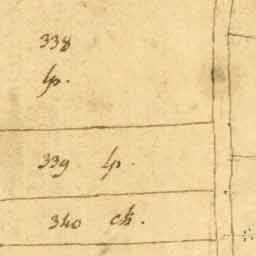 338
lp.
339 lp.
340 ck.